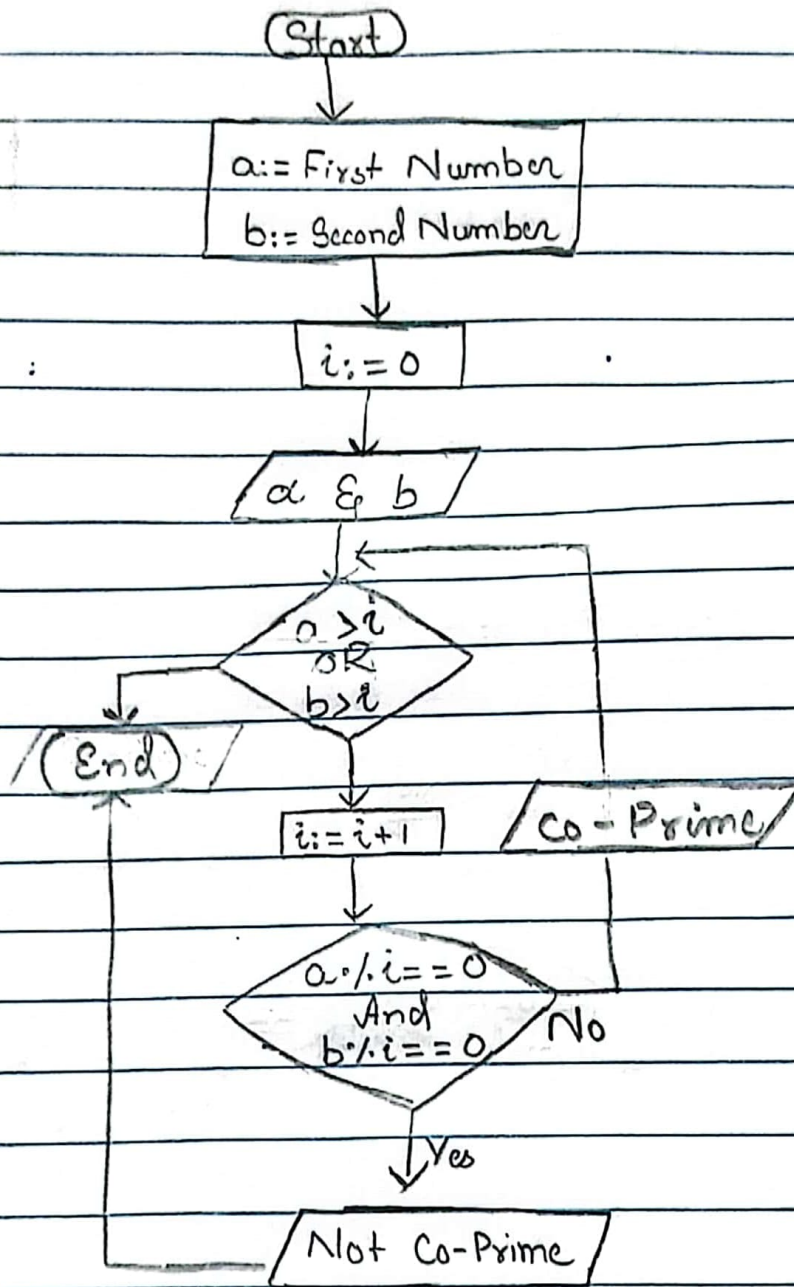 Start
a:= First Number
b:= Second Number
i:= 0
a & b
a > i
OR
b > i
End
i:= i+1
Co-Prime
a % i == 0
And
b % i == 0
No
Yes
Not Co-Prime